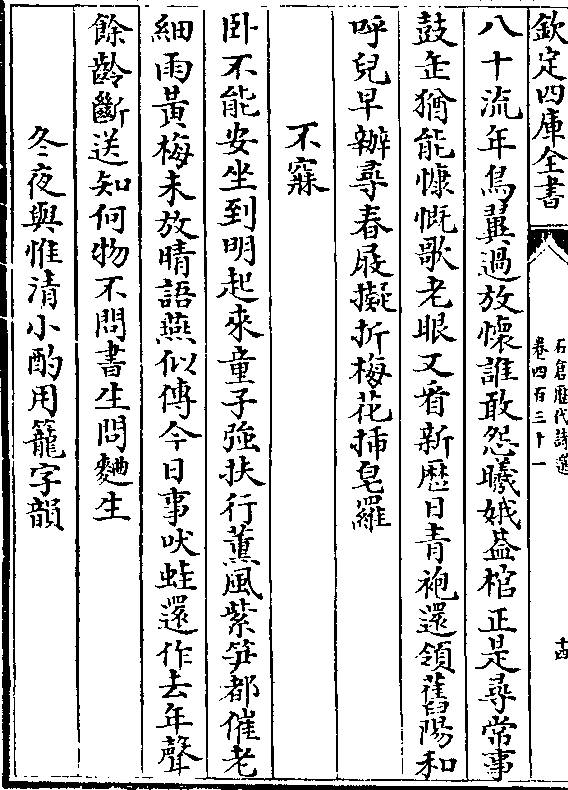 欽定四庫全書
石倉歷代詩選
卷四百三十一
十四
八十流年鳥翼過放懷誰敢怨曦娥葢棺正是尋常事
鼓缶猶能慷慨歌老眼又看新歷日青袍還領舊陽和
呼兒早辦尋春屐擬折梅花揷皂羅
不寐
卧不能安坐到明起來童子強扶行薰風紫笋都催老
細雨黃梅未放晴語燕似傳今日事吠蛙還作去年聲
餘齡斷送知何物不問書生問麯生
冬夜與惟清小酌用籠字韻